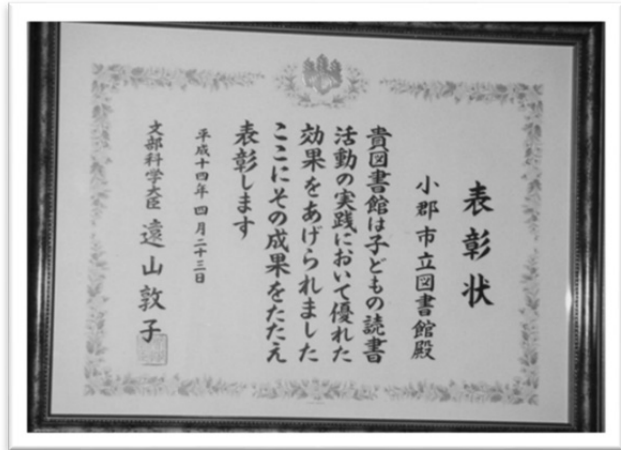 表彰状
小郡市立図書館殿
貴図書館は子どもの読書
活動の実践において優れた
効果をあげられました
ここにその成果をたたえ
表彰します
平成十四年四月二十三日
文部科学大臣 遠山敦子